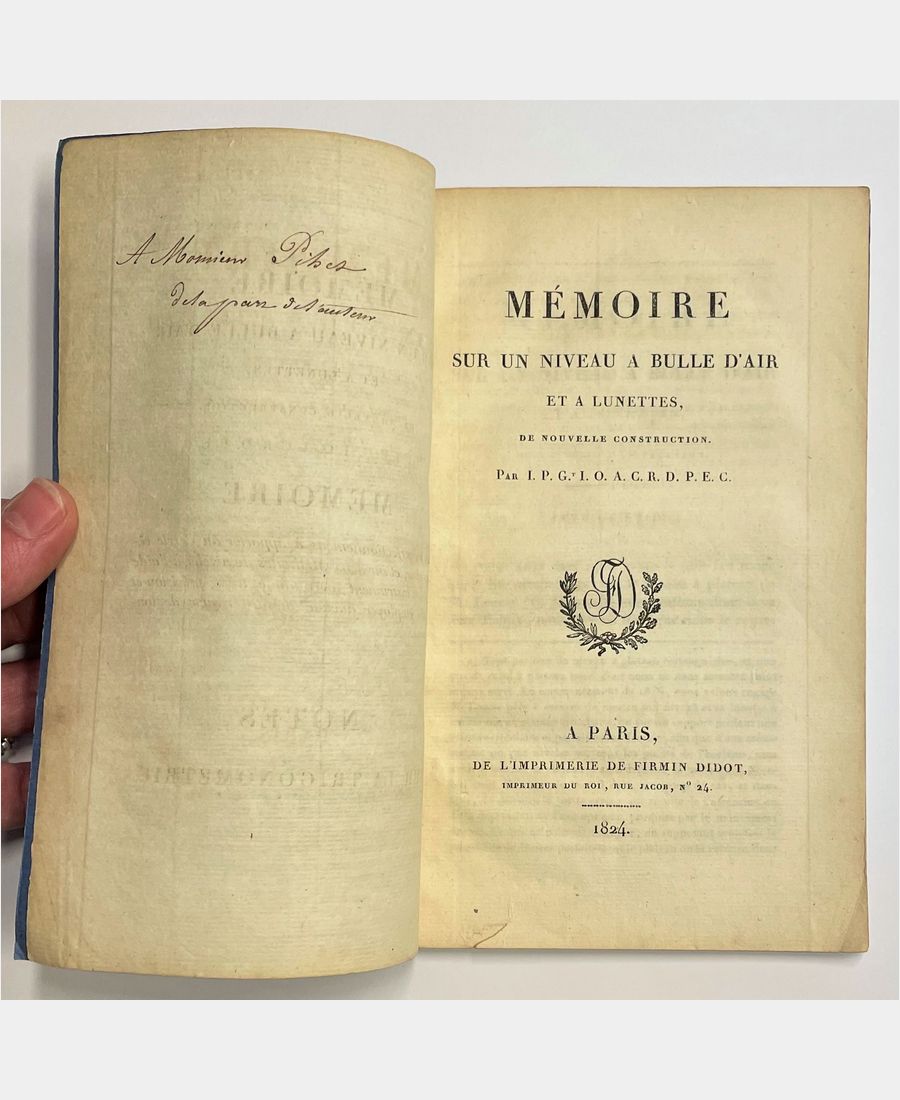 A Monsieur Pihet
de la part de l'auteur
MÉMOIRE
SUR UN NIVEAU A BULLE D'AIR
ET A LUNETTES,
DE NOUVELLE CONSTRUCTION.
PAR I. P. G.T I. O. A. C. R. D. P. E. C.
FD
A PARIS,
DE L'IMPRIMERIE DE FIRMIN DIDOT,
IMPRIMEUR DU ROI, RUE JACOB, N° 24.
1824.